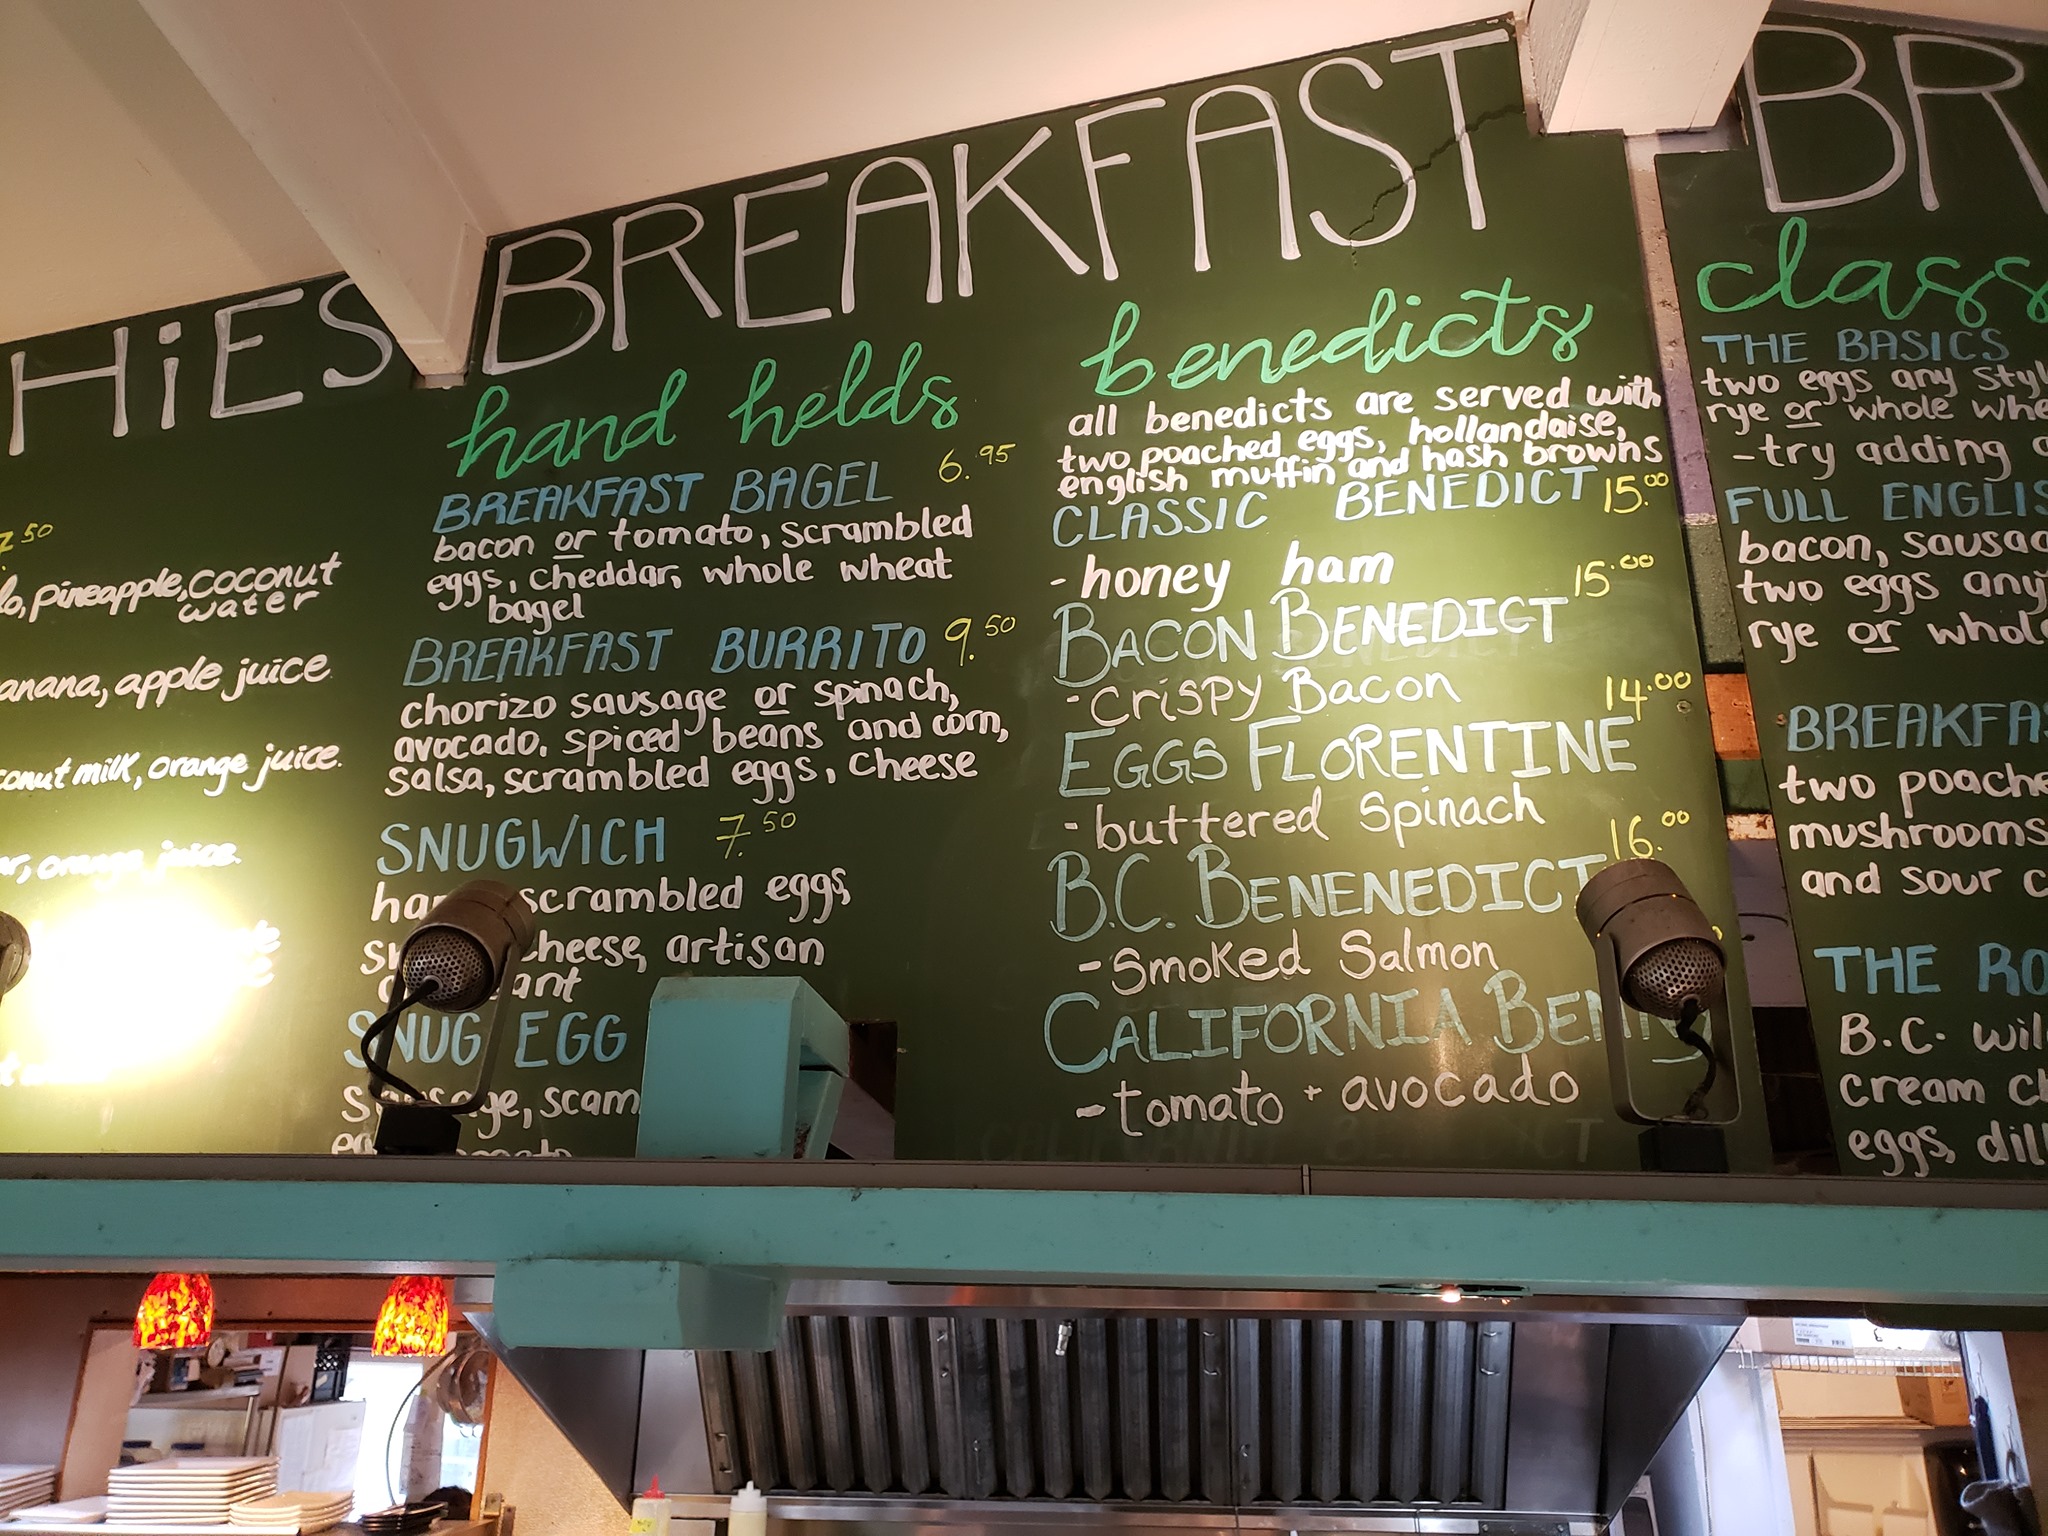 HiES
7.50
pineapple, coconut
water
apple juice
milk, orange juice.
orange juice.
BREAKFAST
hand helds
BREAKFAST BAGEL 6.95
bacon or tomato, scrambled
eggs, cheddar, whole wheat
bagel
BREAKFAST BURRITO 9.50
chorizo sausage or spinach,
avocado, spiced beans and corn,
salsa, scrambled eggs, cheese
SNUGWICH 7.50
scrambled eggs,
cheese, artisan
SNUG EGG
benedicts
all benedicts are served with
two poached eggs, hollandaise,
english muffin and hash browns
CLASSIC BENEDICT 15.00
- honey ham
BACON BENEDICT 15.00
- Crispy Bacon
EGGS FLORENTINE 14.00
- buttered Spinach
B.C. BENENEDICT 16.00
- Smoked Salmon
CALIFORNIA
- tomato + avocado
BR
class
THE BASICS
two eggs any
rye or whole
- try adding
FULL
bacon,
two eggs any
rye or
two
mushrooms
and sour
THE
B.C.
cream
eggs,